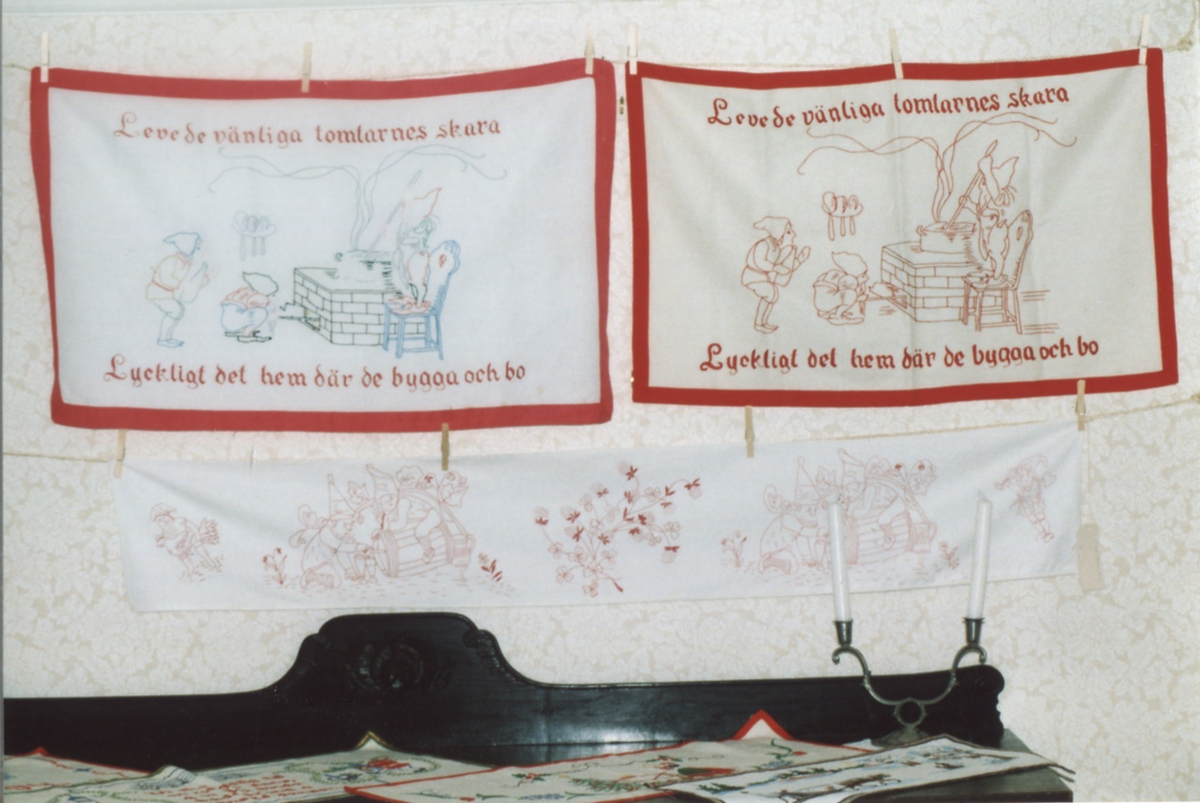 Leve de vänliga tomtarnes skara
Lyckligt det hem där de bygga och bo
Leve de vänliga tomtarnes skara
Lyckligt det hem där de bygga och bo